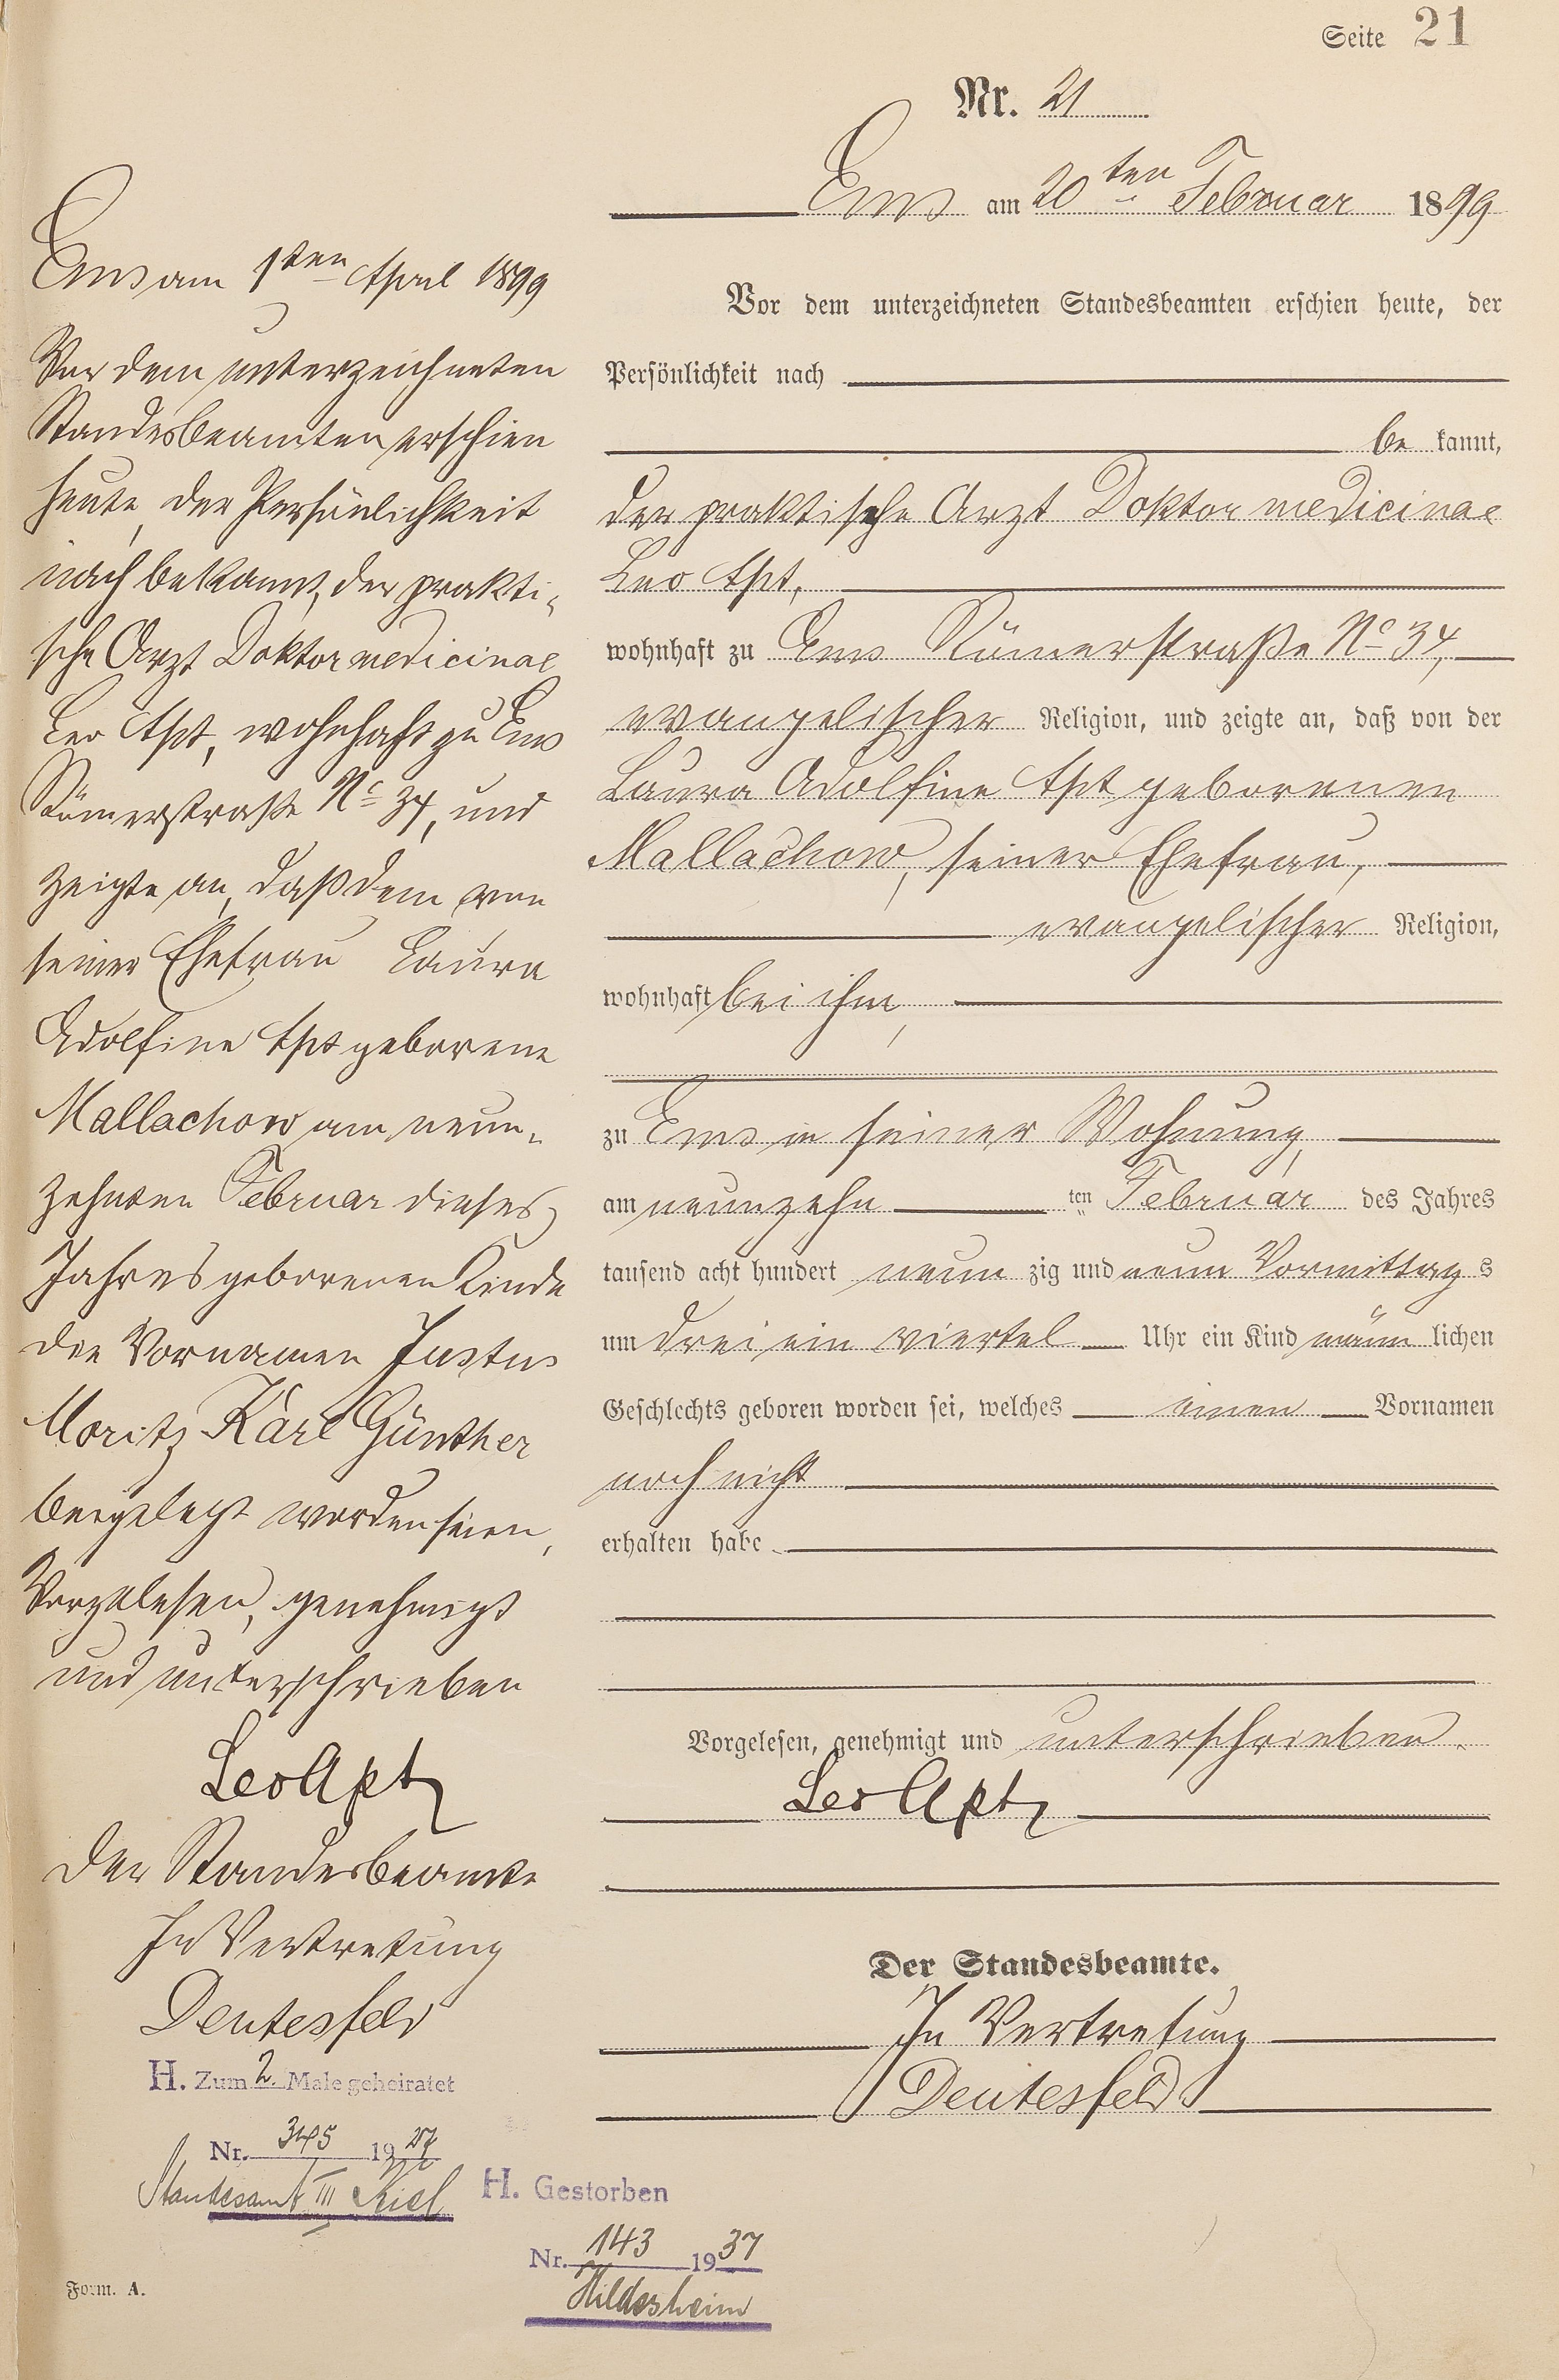 Seite 21
Nr. 21
Ems am 20ten Februar 1899
Vor dem unterzeichneten Standesbeamten erschien heute, der
Persönlichkeit nach
be kannt,
der praktische Arzt Doktor medicinae
Leo Apt,
wohnhaft zu Ems Römerstraße No 34,
evangelischer Religion, und zeigte an, daß von der
Laura Adolfine Apt geborenen
Mallachow, seiner Ehefrau,
evangelischer Religion,
wohnhaft bei ihm,
zu Ems in seiner Wohnung,
am neunzehn ten Februar des Jahres
tausend acht hundert neun zig und neun Vormittag s
um drei ein viertel Uhr ein Kind männ lichen
Geschlechts geboren worden sei, welches einen Vornamen
noch nicht
erhalten habe
Vorgelesen, genehmigt und unterschrieben.
Leo Apt
Der Standesbeamte.
In Vertretung
Deutesfeld
Ems am 1ten April 1899
Vor dem unterzeichneten
Standesbeamten erschien
heute, der Persönlichkeit
nach bekannt, der prakti-
sche Arzt Doktor medicinae
Leo Apt, wohnhaft zu Ems
Römerstraße No 34, und
zeigte an, daß dem von
seiner Ehefrau Laura
Adolfine Apt geborene
Mallachow am neun-
zehnten Februar dieses
Jahres geborenen Kinde
die Vornamen Justus
Moritz Karl Günther
beigelegt worden seien,
Vorgelesen, genehmigt
und unterschrieben
Leo Apt
Der Standesbeamte
In Vertretung
Deutesfeld
H. Zum 2. Male geheiratet
Nr. 345 1927
Standesamt III Kiel
H. Gestorben
Nr. 143 1937
Hildesheim
Form. A.